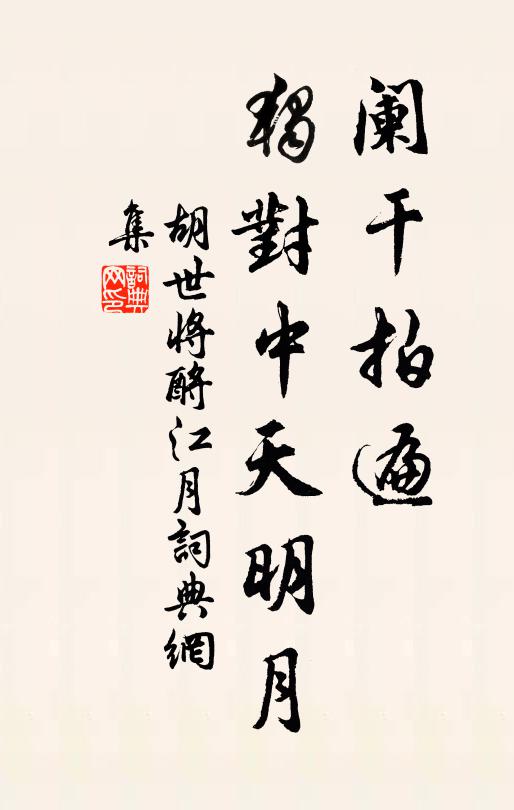 阑干拍遍
獨對中天明月
胡世将酹江月詞典網
集
詞典
网印